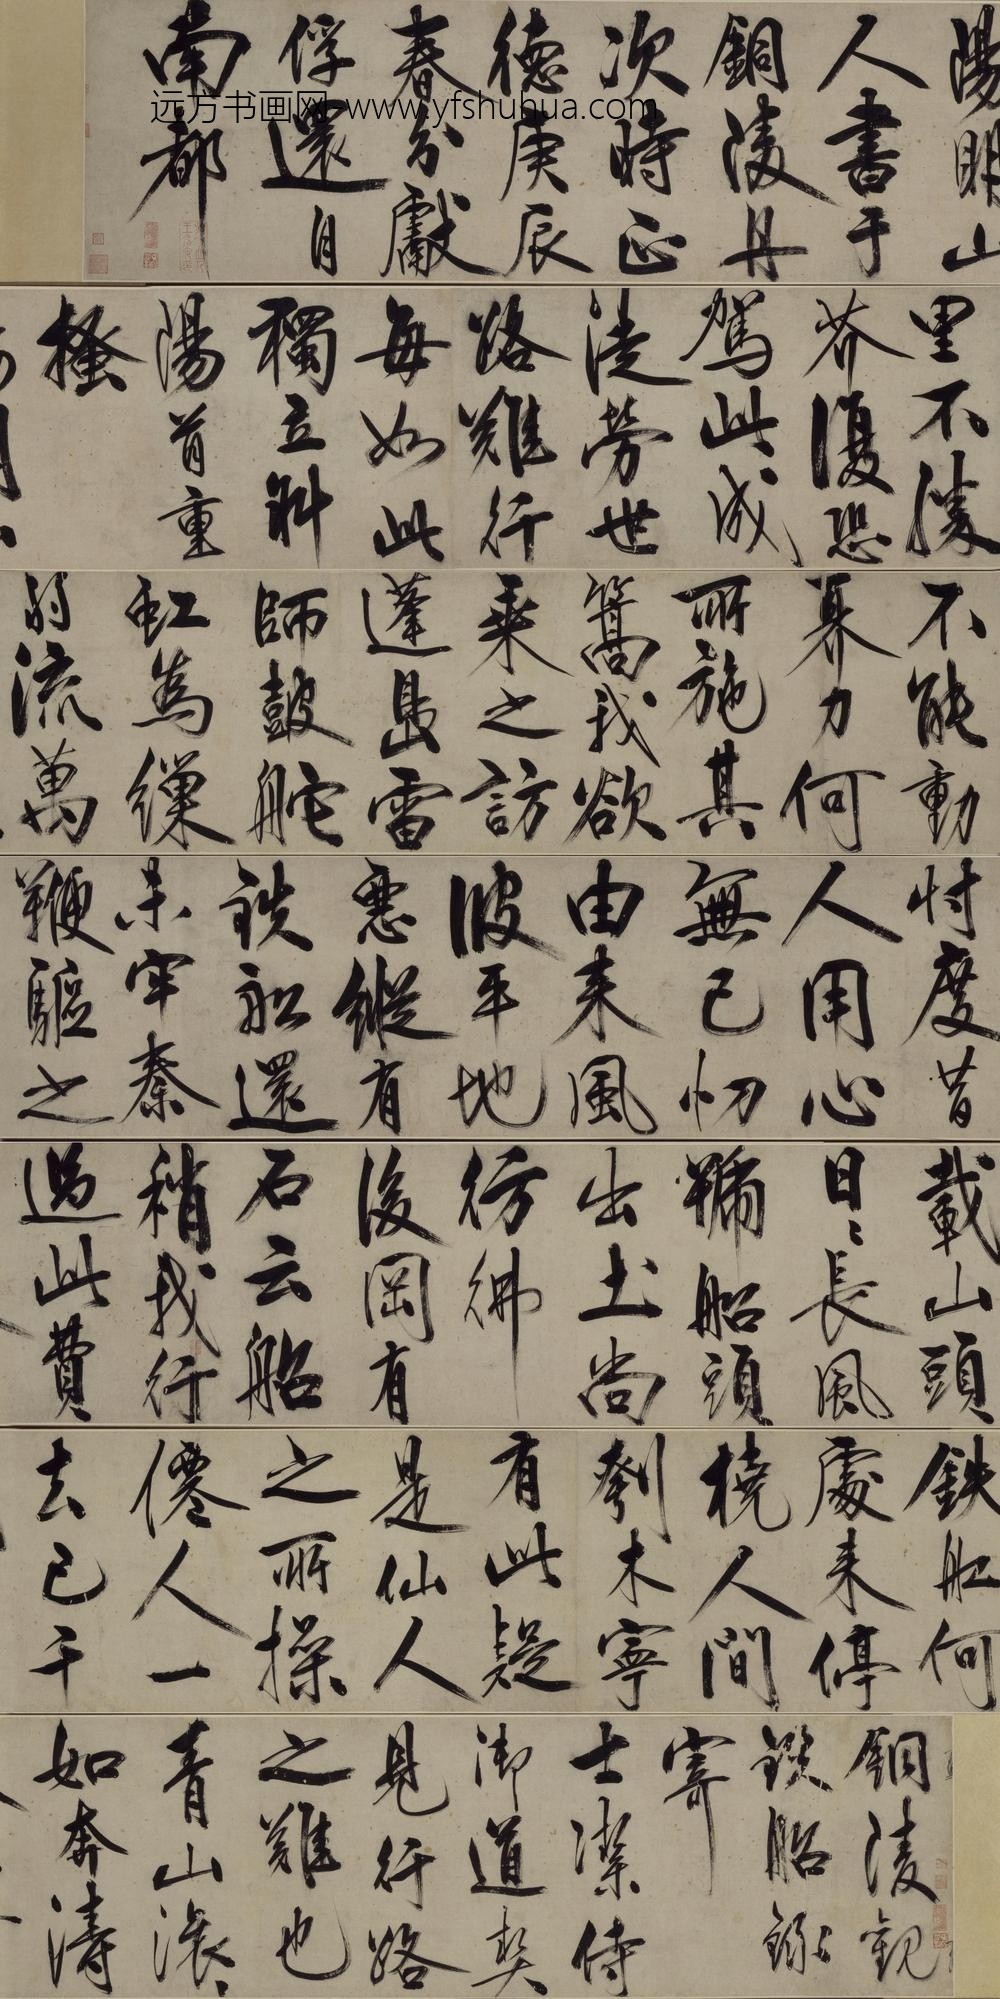 銅陵觀
鐵船錄
寄
士潔侍
御道契
見行路
之難也
青山滾〻
如奔濤
鐵船何
處来停
橈人間
刳木寧
有此疑
是仙人
之所操
僊人一
去已千
載山頭
日〻長風
號船頭
出土尚
彷彿
後岡有
石云船
稍我行
過此費
忖度昔
人用心
無已忉
由来風
波平地
惡縱有
鐵船還
未牢秦
鞭驅之
不能動
奡力何
所施其
篙我欲
乘之訪
蓬島雷
師鼓舵
虹為繅
弱流萬
里不勝
芥復恐
駕此成
徒勞世
路難行
每如此
獨立斜
陽首重
搔
陽明山
人書于
銅陵舟
次時正
德庚辰
春分獻
俘還自
南都
远方书画网 www.yfshuhua.com